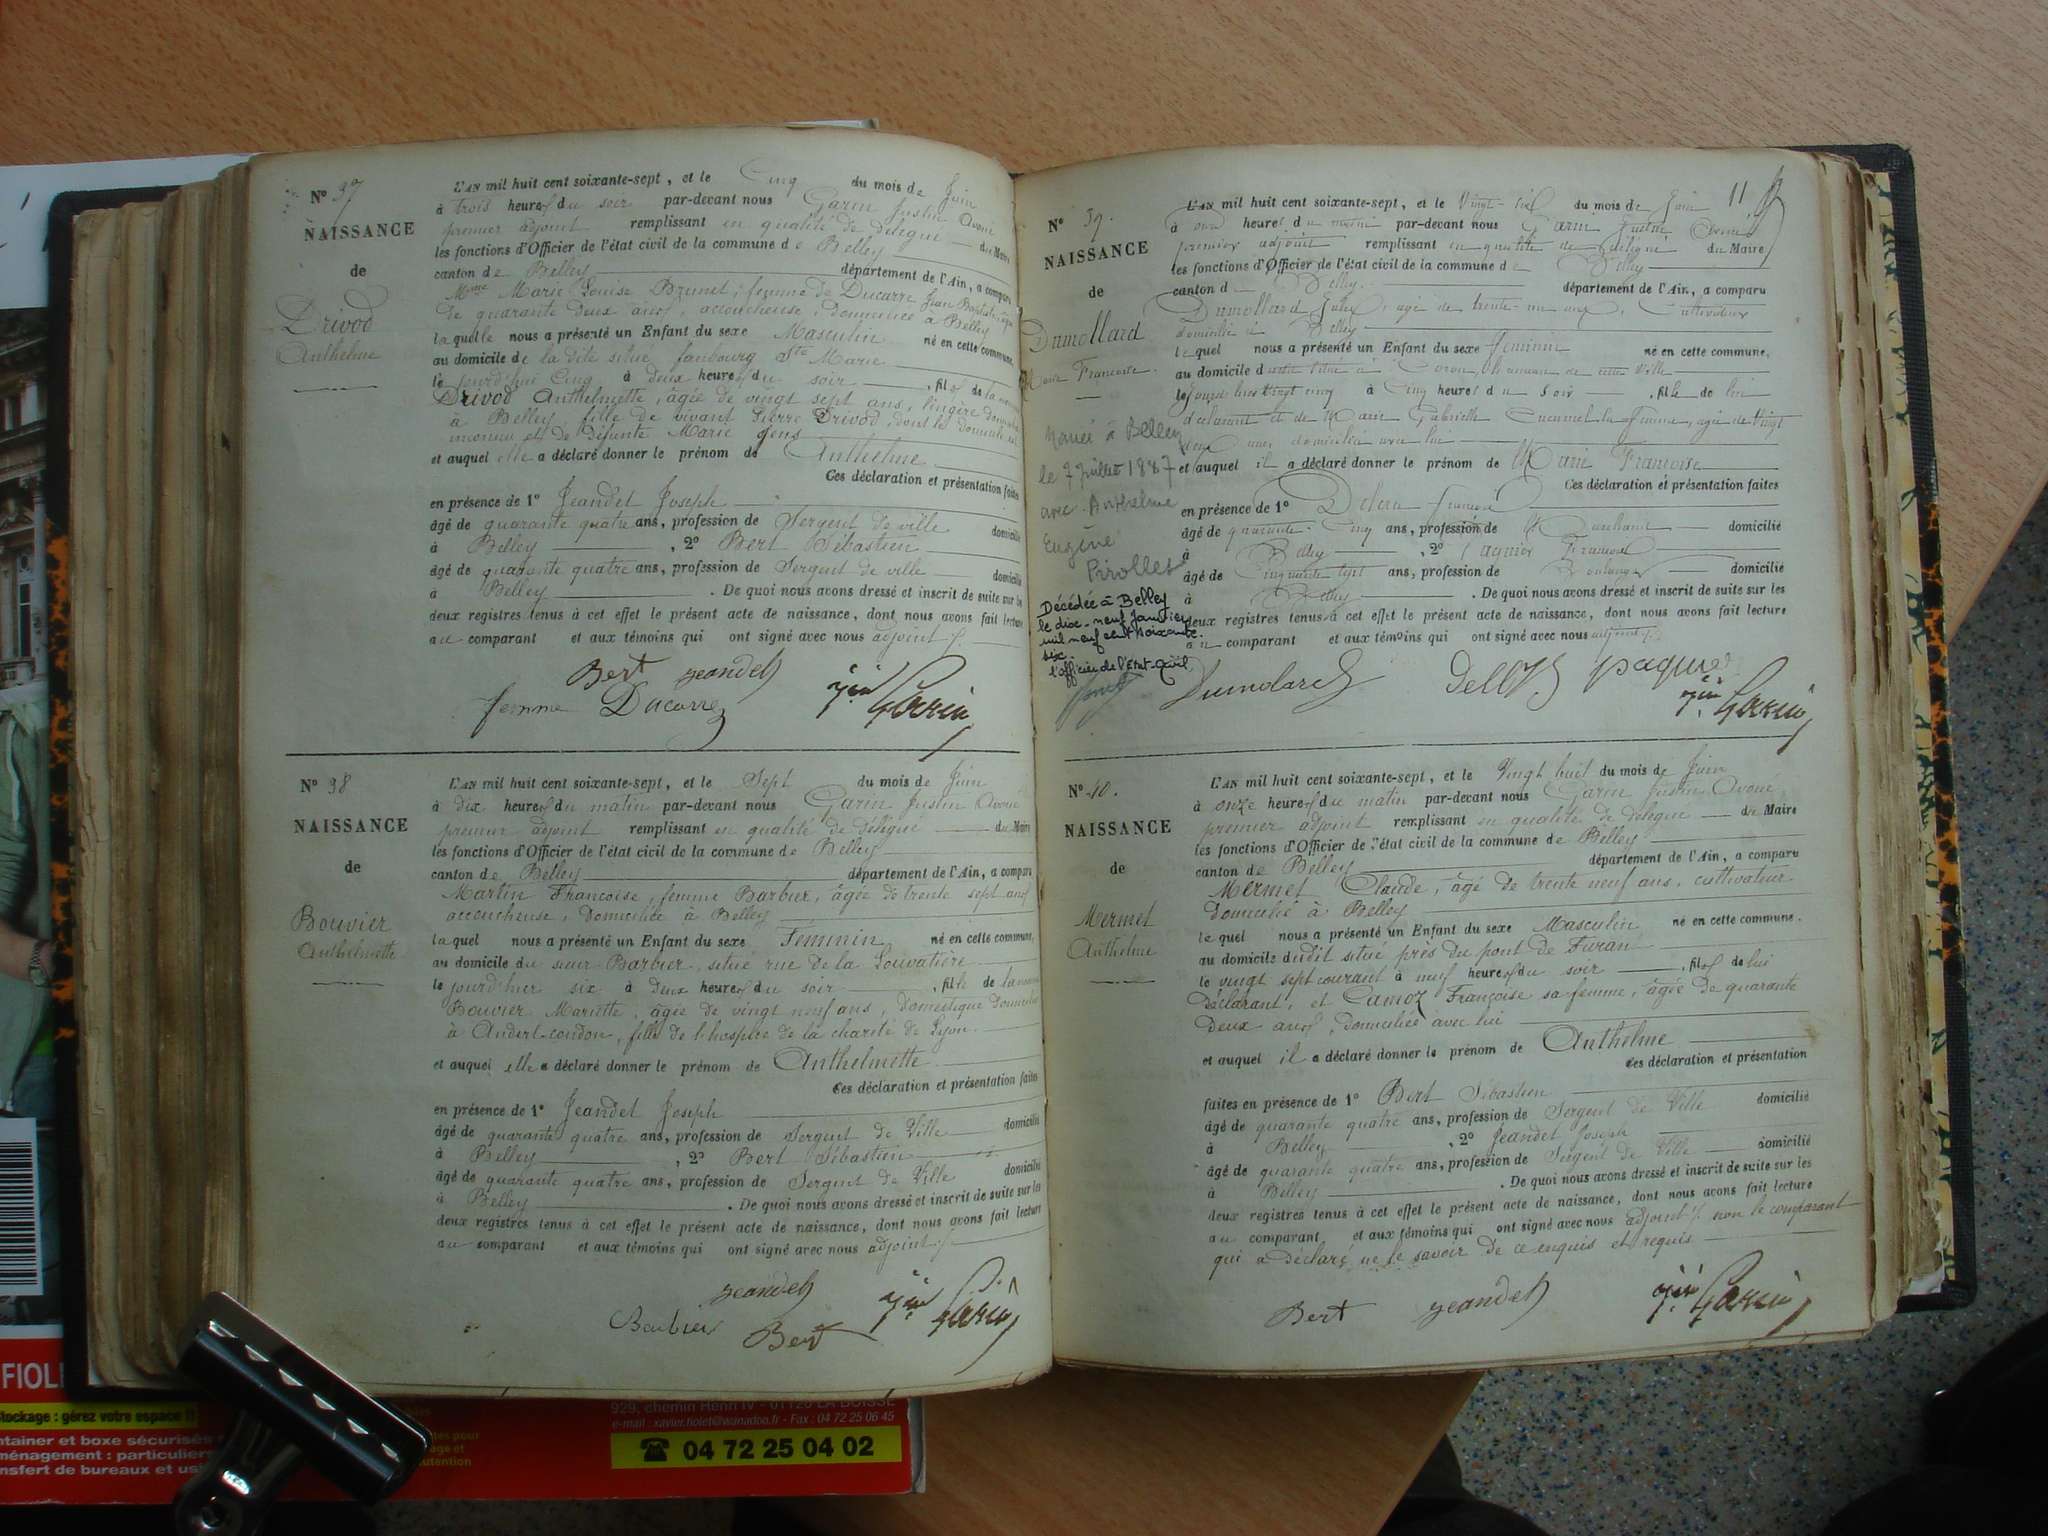 N° 37
NAISSANCE
de
Drivod
Anthelme
L'AN mil huit cent soixante-sept, et le Cinq du mois de Juin
à trois heures du soir par-devant nous Garin Justin Avoué
premier adjoint remplissant en qualité de délégué du Maire
les fonctions d'Officier de l'état civil de la commune de Belley
canton de Belley département de l'Ain, a comparu
Mme Marie Louise Brunet, femme de Ducarre Jean Baptiste, âgée
de quarante deux ans, accoucheuse, domiciliée à Belley
laquelle nous a présenté un Enfant du sexe Masculin né en cette commune,
au domicile de la dite situé faubourg Ste Marie
le jourd'hui Cinq à deux heures du soir, fils de la nommée
Drivod Anthelmette, âgée de vingt sept ans, lingère domiciliée
à Belley, fille de vivant Pierre Drivod, dont le domicile est
inconnu et de défunte Marie Gens
et auquel elle a déclaré donner le prénom de Anthelme
Ces déclaration et présentation faites
en présence de 1° Jeandet Joseph
âgé de quarante quatre ans, profession de Sergent de ville domicilié
à Belley, 2° Bert Sébastien
âgé de quarante quatre ans, profession de Sergent de ville domicilié
à Belley. De quoi nous avons dressé et inscrit de suite sur les
deux registres tenus à cet effet le présent acte de naissance, dont nous avons fait lecture
au comparant et aux témoins qui ont signé avec nous adjoint
Bert Jeandet
femme Ducarre Jin Garin
N° 38
NAISSANCE
de
Bouvier
Anthelmette
L'AN mil huit cent soixante-sept, et le Sept du mois de Juin
à dix heures du matin par-devant nous Garin Justin Avoué
premier adjoint remplissant en qualité de délégué du Maire
les fonctions d'Officier de l'état civil de la commune de Belley
canton de Belley département de l'Ain, a comparu
Martin Françoise, femme Barbier, âgée de trente sept ans
accoucheuse, domiciliée à Belley
laquel nous a présenté un Enfant du sexe Féminin né en cette commune,
au domicile du sieur Barbier, situé rue de la Louvatière
le jourd'hier six à deux heures du soir, fille de la nommée
Bouvier Mariette, âgée de vingt neuf ans, domestique domiciliée
à Andert-condon, fille de l'hospice de la charité de Lyon
et auquel elle a déclaré donner le prénom de Anthelmette
Ces déclaration et présentation faites
en présence de 1° Jeandet Joseph
âgé de quarante quatre ans, profession de Sergent de Ville domicilié
à Belley, 2° Bert Sébastien
âgé de quarante quatre ans, profession de Sergent de Ville domicilié
à Belley. De quoi nous avons dressé et inscrit de suite sur les
deux registres tenus à cet effet le présent acte de naissance, dont nous avons fait lecture
au comparant et aux témoins qui ont signé avec nous adjoint
Jeandet
Barbier Bert Jin Garin
11
N° 39.
NAISSANCE
de
Dumollard
Marie Françoise
Mariée à Belley
le 7 juillet 1887
avec Anthelme
Eugène
Pirolles
Décédée à Belley
le dix-neuf Janvier
mil neuf cent soixante
six.
l'officier de l'Etat-Civil
L'AN mil huit cent soixante-sept, et le Vingt-six du mois de Juin
à onze heures du matin par-devant nous Garin Justin Avoué
premier adjoint remplissant en qualité de délégué du Maire
les fonctions d'Officier de l'état civil de la commune de Belley
canton de Belley département de l'Ain, a comparu
Dumollard, âgé de trente un ans, Cultivateur
domicilié à Belley
lequel nous a présenté un Enfant du sexe féminin né en cette commune,
au domicile dudit situé à Coron, commune de cette Ville
le jourd'hier vingt cinq à Cinq heures du soir, fille de lui
déclarant et de Marie Gabrielle sa femme, agée de vingt
ans, domiciliée avec lui
et auquel il a déclaré donner le prénom de Marie Françoise
Ces déclaration et présentation faites
en présence de 1° François
âgé de quarante-Cinq ans, profession de Marchand domicilié
à Belley, 2° François
âgé de Cinquante sept ans, profession de Boulanger domicilié
à Belley. De quoi nous avons dressé et inscrit de suite sur les
deux registres tenus à cet effet le présent acte de naissance, dont nous avons fait lecture
au comparant et aux témoins qui ont signé avec nous adjoint
Dumolard Jin Garin
N° 40.
NAISSANCE
de
Mermet
Anthelme
L'AN mil huit cent soixante-sept, et le Vingt huit du mois de Juin
à onze heures du matin par-devant nous Garin Justin Avoué
premier adjoint remplissant en qualité de délégué du Maire
les fonctions d'Officier de l'état civil de la commune de Belley
canton de Belley département de l'Ain, a comparu
Mermet Claude, âgé de trente neuf ans, cultivateur
domicilié à Belley
lequel nous a présenté un Enfant du sexe Masculin né en cette commune.
au domicile dudit situé près du pont de Furan
le vingt sept courant à neuf heures du soir, fils de lui
déclarant, et Camoz Françoise sa femme, âgée de quarante
deux ans, domiciliée avec lui
et auquel il a déclaré donner le prénom de Anthelme
Ces déclaration et présentation
faites en présence de 1° Bert Sébastien
âgé de quarante quatre ans, profession de Sergent de Ville domicilié
à Belley, 2° Jeandet Joseph
âgé de quarante quatre ans, profession de Sergent de Ville domicilié
à Belley. De quoi nous avons dressé et inscrit de suite sur les
deux registres tenus à cet effet le présent acte de naissance, dont nous avons fait lecture
au comparant et aux témoins qui ont signé avec nous adjoint non le comparant
qui a déclaré ne le savoir de ce enquis et requis
Bert Jeandet Jin Garin
FIOL
Stockage : gérez votre espace !!
ntainer et boxe sécurisés
ménagement : particuliers
nsfert de bureaux et us
929, chemin Henri IV - 01120 LA BOISSE
e-mail : xavier.fiolet@wanadoo.fr - Fax : 04 72 25 06 45
04 72 25 04 02